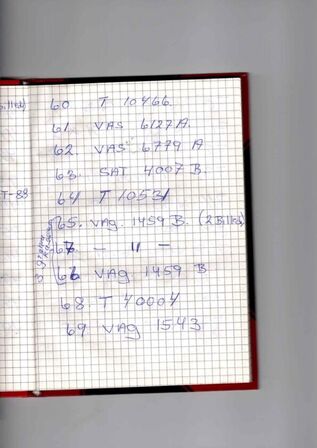 60 T 10466.
61. VAS 6127 A.
62. VAS 6779 A
63. SAT 4007 B.
T-89
64 T 10531
65. VAG. 1459 B. (2 Billed)
67. — " —
66 VAG 1459 B
68 T 40004
69 VAG 1543